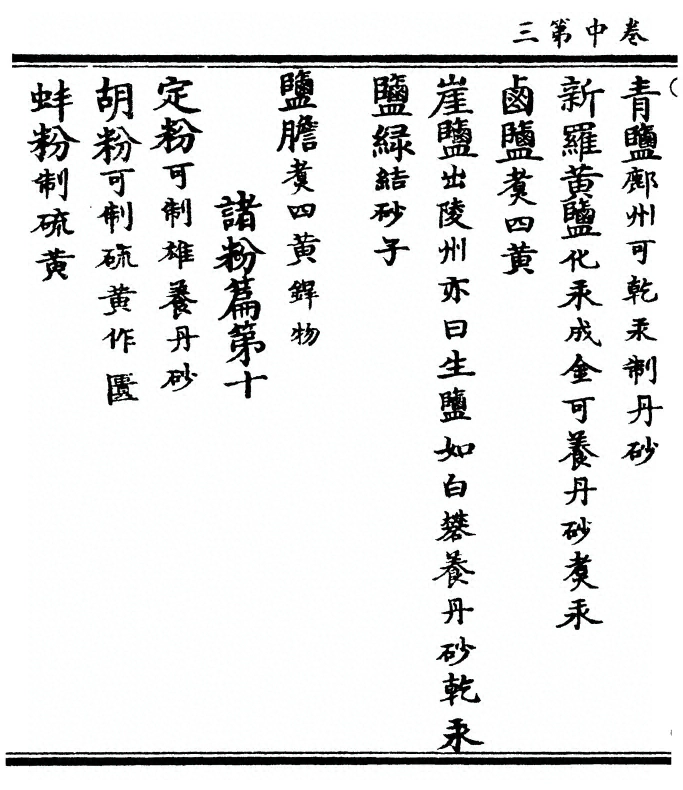 卷中第三
青鹽鄜州可乾汞制丹砂
新羅黃鹽化汞成金可養丹砂煑汞
鹵鹽煑四黃
崖鹽出陵州亦曰生鹽如白礬養丹砂乾汞
鹽緑結砂子
鹽膽煑四黃銲物
諸粉篇第十
定粉可制雄養丹砂
胡粉可制硫黃作匱
蚌粉制硫黃